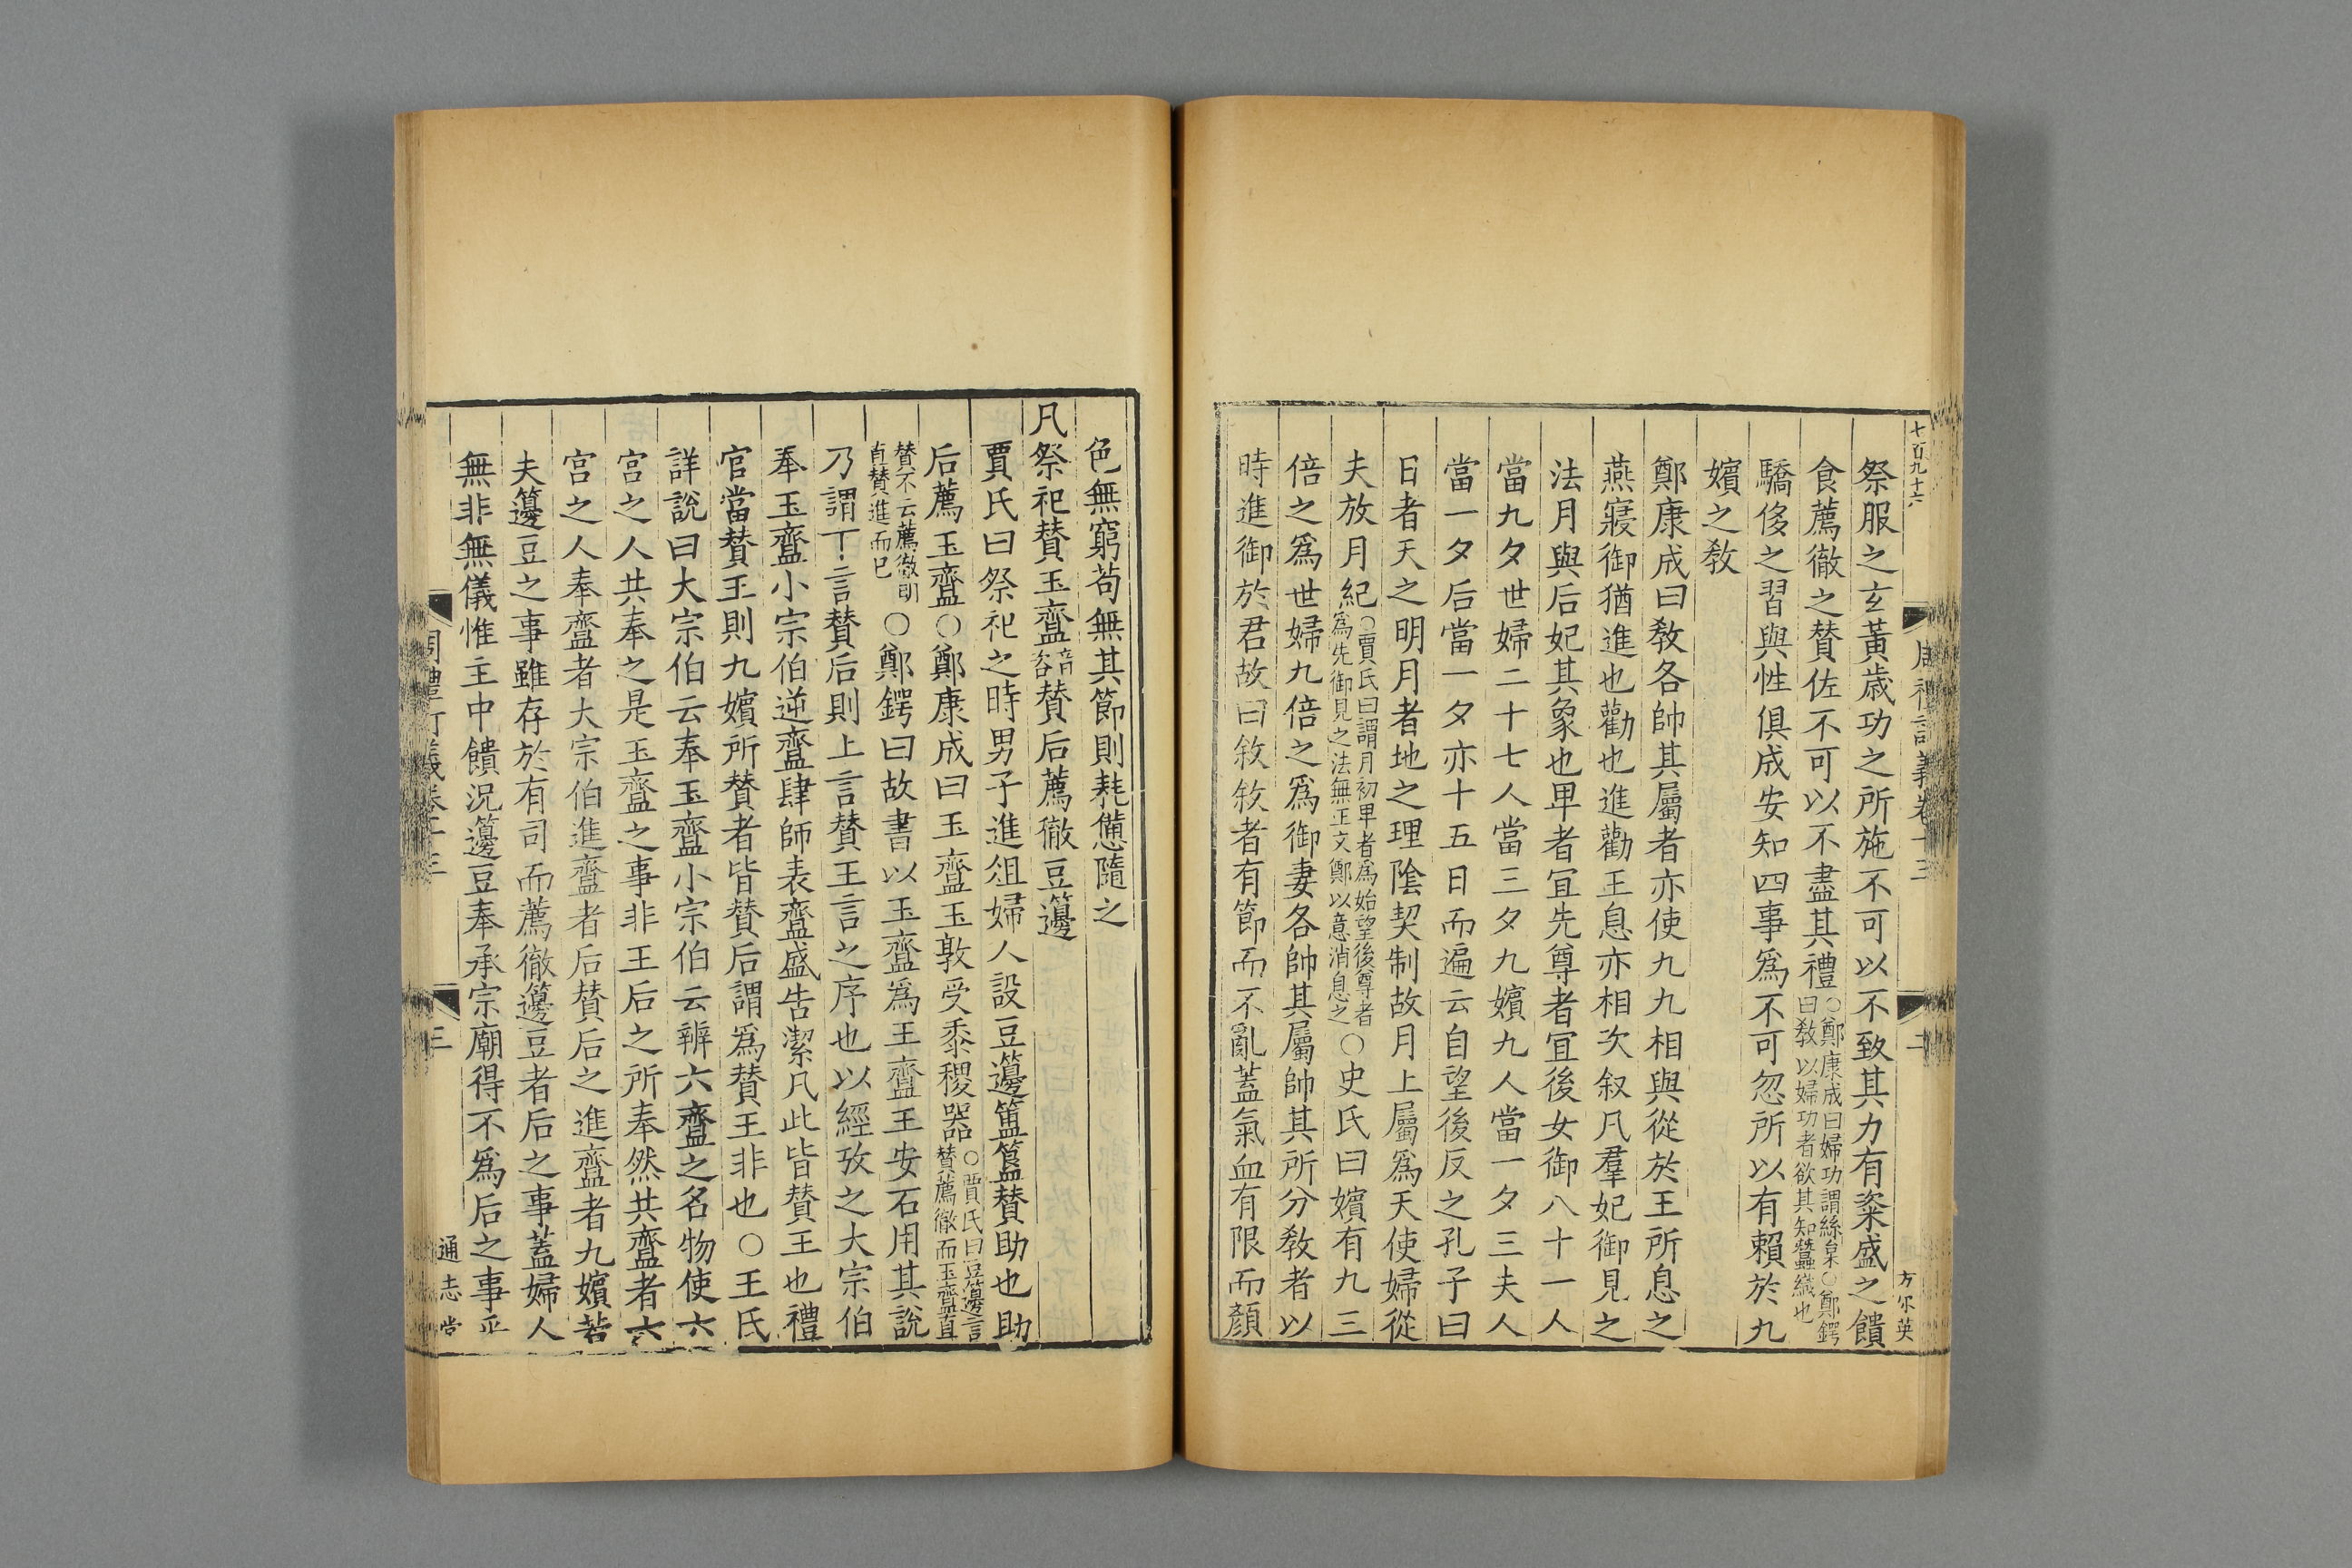 七百九十六
方尒英
祭服之玄黃歲功之所施不可以不致其力有粢盛之饋
食薦徹之賛佐不可以不盡其禮○鄭康成曰婦功謂絲枲○鄭鍔曰敎以婦功者欲其知蠶織也
驕侈之習與性俱成安知四事爲不可忽所以有賴於九
嬪之敎
鄭康成曰敎各帥其屬者亦使九九相與從於王所息之
燕寢御猶進也勸也進勸王息亦相次叙凡羣妃御見之
法月與后妃其象也卑者宜先尊者宜後女御八十一人
當九夕世婦二十七人當三夕九嬪九人當一夕三夫人
當一夕后當一夕亦十五日而遍云自望後反之孔子曰
日者天之明月者地之理陰契制故月上屬爲天使婦從
夫放月紀○賈氏曰謂月初卑者爲始望後尊者爲先御見之法無正文鄭以意消息之○史氏曰嬪有九三
倍之爲世婦九倍之爲御妻各帥其屬帥其所分敎者以
時進御於君故曰敘敘者有節而不亂蓋氣血有限而顏
色無窮苟無其節則耗憊隨之
凡祭祀賛玉齍音咨賛后薦徹豆籩
賈氏曰祭祀之時男子進俎婦人設豆籩簠簋賛助也助
后薦玉齍○鄭康成曰玉齍玉敦受黍稷器○賈氏曰豆籩言賛薦徹而玉齍直
賛不云薦徹明直賛進而已○鄭鍔曰故書以玉齍爲王齍王安石用其說
乃謂下言賛后則上言賛王言之序也以經攷之大宗伯
奉玉齍小宗伯逆齍肆師表齍盛告潔凡此皆賛王也禮
官當賛王則九嬪所賛者皆賛后謂爲賛王非也○王氏
詳說曰大宗伯云奉玉齍小宗伯云辨六齍之名物使六
宫之人共奉之是玉齍之事非王后之所奉然共齍者六
宫之人奉齍者大宗伯進齍者后賛后之進齍者九嬪若
夫籩豆之事雖存於有司而薦徹籩豆者后之事蓋婦人
無非無儀惟主中饋況籩豆奉承宗廟得不爲后之事乎
三
通志堂